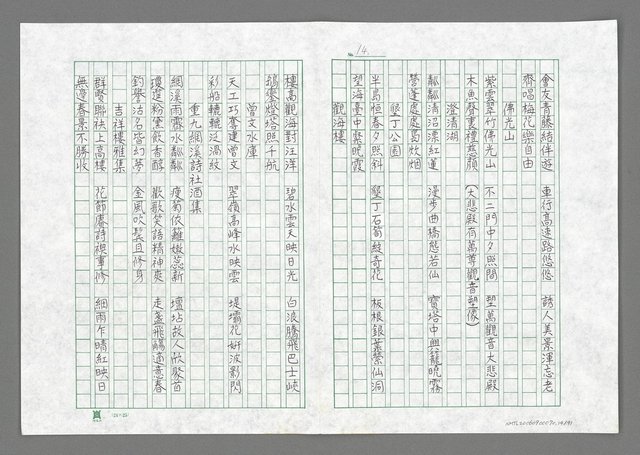 No. 14
會友青藤結伴遊 車行高速路悠悠 誘人美景渾忘老
齊唱梅花樂自由
佛光山
紫雲翠竹佛光山 不二門中夕照間 塑萬觀音大悲殿
木魚聲裏禮慈顏 (大悲殿有萬尊觀音塑像)
澄清湖
粼粼清沼漂紅蓮 漫步曲橋態若仙 寶塔中興籠曉霧
營蓬處處萬炊烟
墾丁公園
半島恒春夕照斜 墾丁石筍綻奇花 板根銀葉縈仙洞
望海臺中聚晚霞
觀海樓
樓高觀海對汪洋 碧水雲天映日光 白浪騰飛巴士峽
鵝鑾燈塔照千航
曾文水庫
天工巧奪建曾文 翠嶺高峰水映雲 堤壩花妍波影閃
彩船轆轆泛漪紋
重九網溪詩社酒集
網溪雨霽水粼粼 瘦菊依籬嫩蕊新 壇坫故人欣聚首
瓊筵粉黛飲香醇 歡歌笑語精神爽 走盞飛觴適意春
釣譽沽名皆幻夢 金風吹髮且修身
吉祥樓雅集
群賢聯袂上高樓 花節賡詩禊事修 細雨乍晴紅映日
無邊春景不勝收